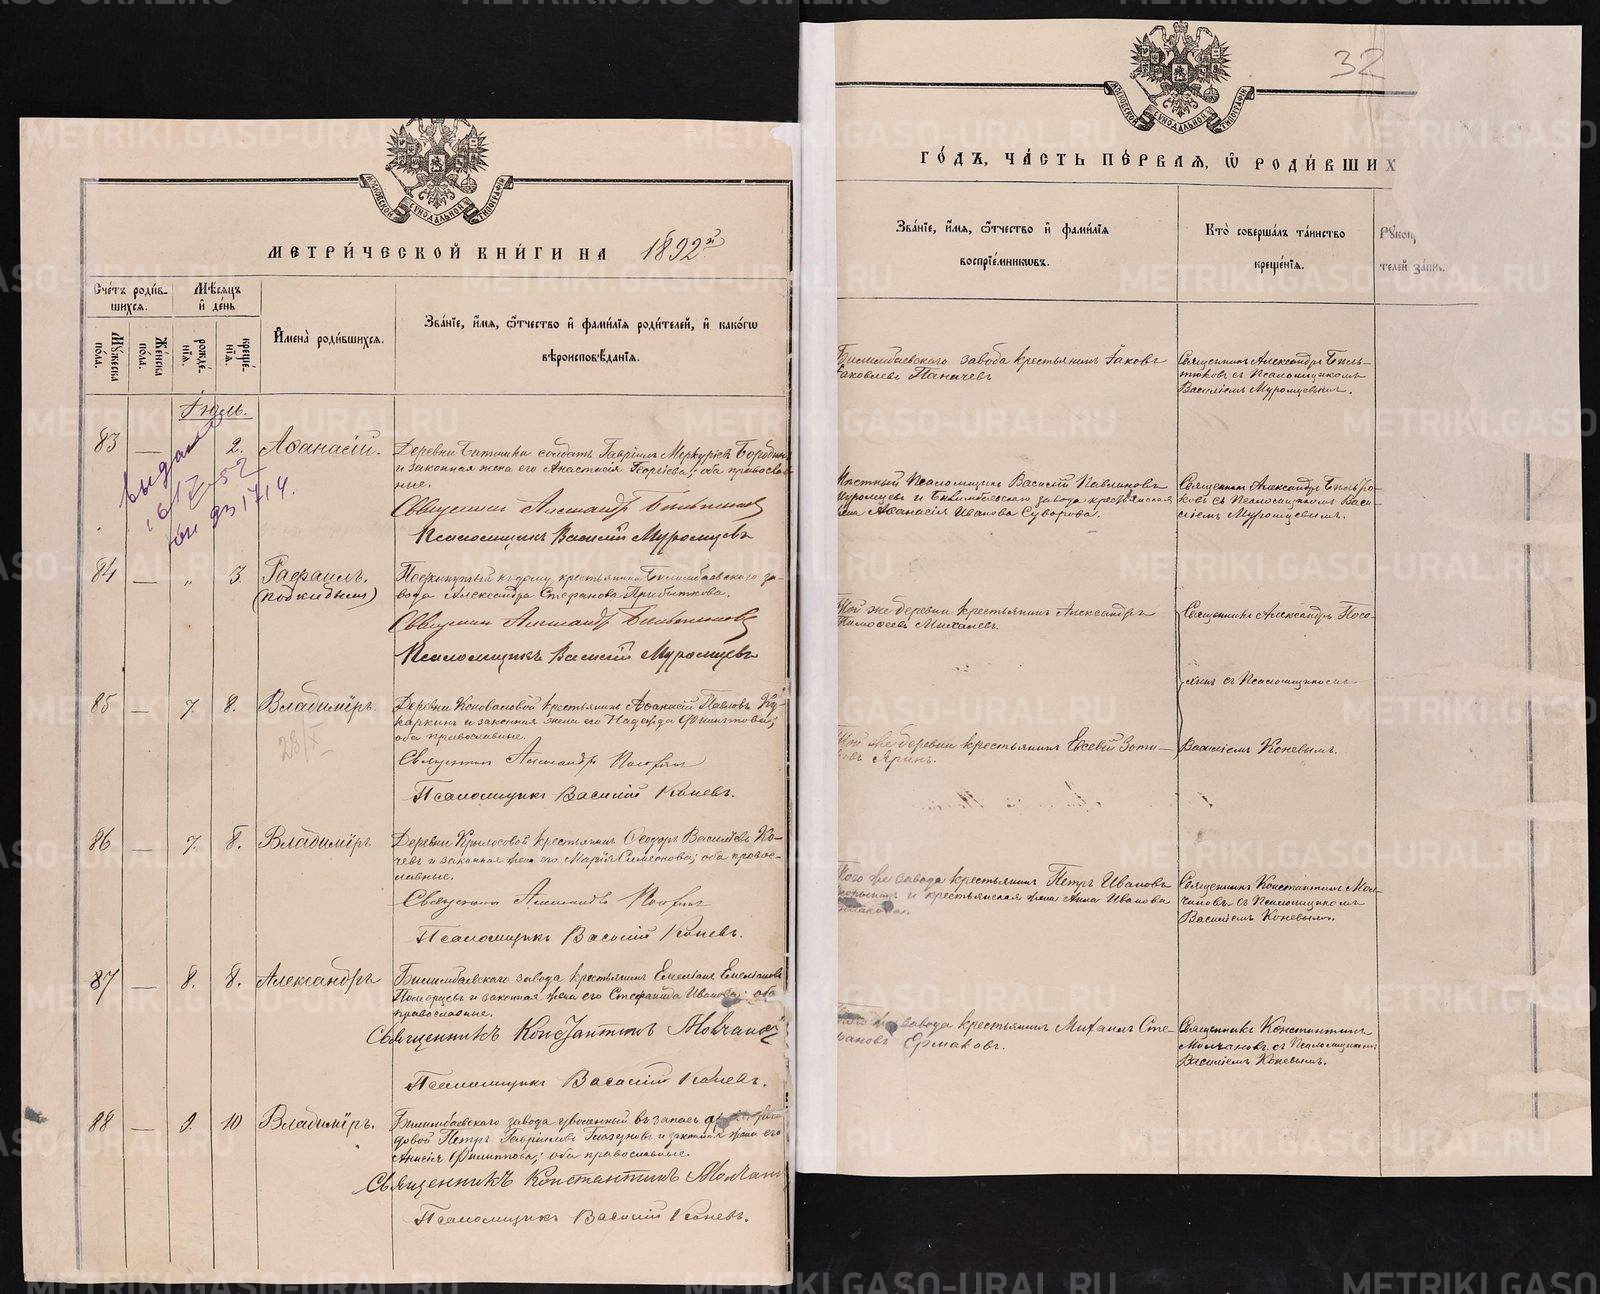 МЕТРИ́ЧЕСКОЙ КНИ́ГИ НА 1892й
Счéтъ роди́в-
шихсѧ.
Мѣ́сѧцъ
и҆ де́нь
Мꙋ́жеска
по́ла.
Же́нска
по́ла.
рожде́-
нїѧ.
креще́-
нїѧ.
И҆мена̀ роди́вшихсѧ.
Зва́нїе, и҆́мѧ, ѻ҆́тчество и҆ фами́лїѧ роди́телей, и҆ како́гѡ
вѣроисповѣ́данїѧ.
Іюль.
83 — 2. Аѳанасій.
Деревни солдатъ Гавріилъ Меркуріевъ
и законная жена его Анастасія Георгіева; оба православ-
ные.
Священникъ Александръ
Псаломщикъ Василій Муромцевъ
84 — „ 3. Рафаилъ.
(подкидышъ)
Подкинутый къ дому крестьянина Билимбаевскаго за-
вода Александра Стефанова Прибыткова.
Священникъ Александръ
Псаломщикъ Василій Муромцевъ
85 — 7. 8. Владиміръ.
Деревни Коноваловой крестьянинъ Аѳанасій Павловъ
и законная жена его Надежда Филиппова;
оба православные.
Священникъ Александръ
Псаломщикъ Василій Коневъ.
86 — 7. 8. Владиміръ
Деревни Крылосовой крестьянинъ Ѳеодоръ Васильевъ Ко-
чевъ и законная жена его Марія Симеонова; оба правос-
лавные.
Священникъ Александръ
Псаломщикъ Василій Коневъ.
87 — 8. 8. Александръ
Билимбаевскаго завода крестьянинъ Емеліанъ Емеліановъ
и законная жена его Стефанида Иванова; оба
православные.
Священникъ Константинъ Молчановъ
Псаломщикъ Василій Коневъ.
88 — 9. 10 Владиміръ.
Билимбаевскаго завода уволенный въ запасъ
довой Петръ Гавриловъ и законная жена его
Филиппова; оба православные.
Священникъ Константинъ Молчан
Псаломщикъ Василій Коневъ.
выдана
32
ГО́ДЪ, ЧА́СТЬ ПЕ́РВАѦ, Ѽ РОДИ́ВШИХ
Зва́нїе, и҆́мѧ, ѻ҆́тчество и҆ фами́лїѧ
воспрїе́мникѡвъ.
Кто̀ соверша́лъ та́инство
креще́нїѧ.
Рꙋко
телей за́пи
Билимбаевскаго завода крестьянинъ Іаковъ
аковлевъ Паначевъ
Священникъ Александръ
съ Псаломщикомъ
Василіемъ Муромцевымъ.
Мѣстный Псаломщикъ Василій Павлиновъ
Муромцевъ и Билимбаевскаго завода крестьянская
Аѳанасія Иванова Суворова.
Священникъ Александръ
ковъ съ Псаломщикомъ Васи-
ліемъ Муромцевымъ.
той же деревни крестьянинъ Александръ
Тимоѳеевъ Михалевъ.
Священникъ Александръ
съ Псаломщикомъ
Василіемъ Коневымъ.
той же деревни крестьянинъ Евсевій Зоти-
овъ Яринъ.
того же завода крестьянинъ Петръ Ивановъ
и крестьянская жена Анна Иванова
Священникъ Константинъ Мол-
чановъ съ Псаломщикомъ
Василіемъ Коневымъ.
того же завода крестьянинъ Михаилъ Сте-
фановъ Ермаковъ.
Священникъ Константинъ
Молчановъ съ Псаломщикомъ
Василіемъ Коневымъ.
METRIKI.GASO-URAL.RU